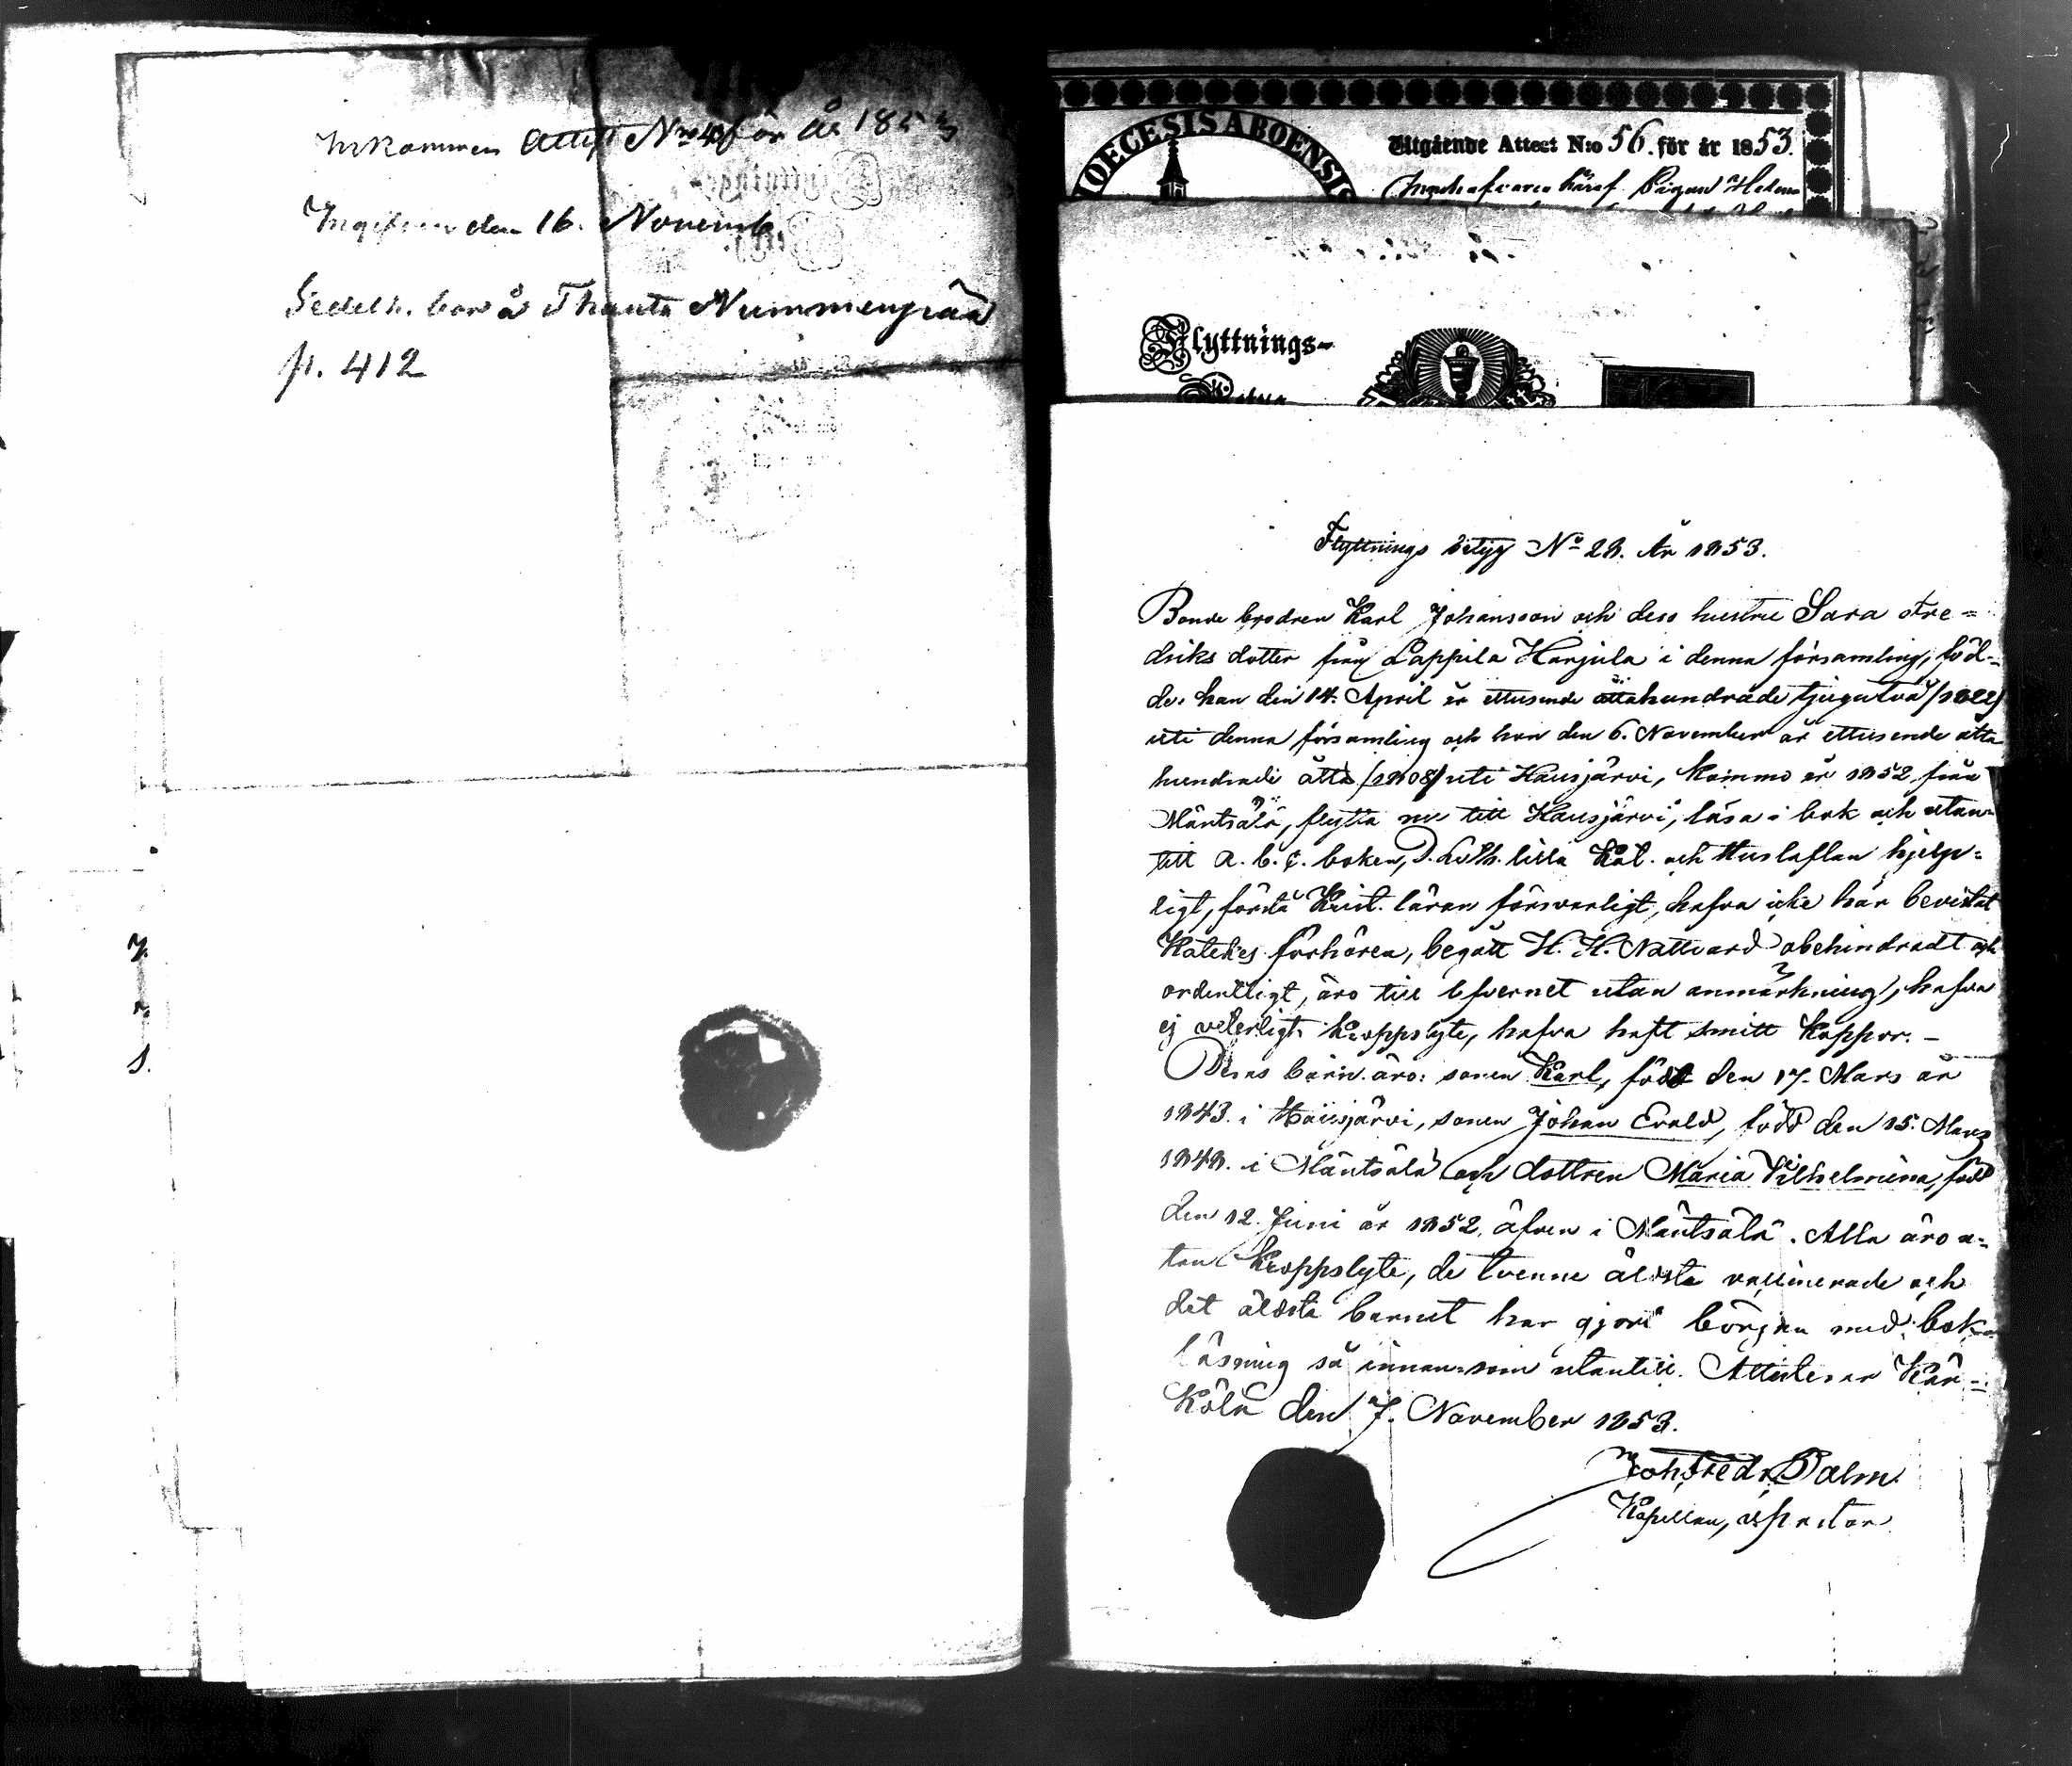 Inkommen Attest Nro 4 för år 1853
Ingifven den 16. Novemb.
Sedelh. bor å Thauta Nummenpää
p. 412
DIOECESIS ABOENSIS
Utgående Attest N:o 56. för år 1853.
Flyttnings-
Flyttnings betyg No 28. År 1853.
Bonde brodren Karl Johansson och dess hustru Sara Fre=
driks dotter från Lappila Harjula i denna församling, föd=
de: han den 14. April år ettusende åttahundrade tjugutvå /1822/
uti denna församling och hon den 6. November år ettusende åtta
hundrade åtta /1808/ uti Hausjärvi, komma år 1852 från
Mäntsälä, flytta nu till Hausjärvi, läsa i bok och utan=
till a. b. c. boken, D. Luth. lilla Kat. och Hustaflan hjelp=
ligt, förstå Krist. läran försvarligt, hafva icke här bevistat
Katekes förhören, begått H. H. Nattvard obehindradt och
ordentligt, äro till lefvernet utan anmärkning, hafva
ej veterligt kroppslyte, hafva haft smitt koppor. —
Deras barn äro: sonen Karl, född den 17. Mars år
1843. i Hausjärvi, sonen Johan Evald, född den 15. Mars
1848. i Mäntsälä och dottren Maria Vilhelmina, född
den 12. Juni år 1852, äfven i Mäntsälä. Alla äro u=
tan kroppslyte, de tvenne äldsta vaccinerade och
det äldsta barnet har gjort början med bok=
läsning så innan- som utantill. Attesterar Kär=
kölä den 7. November 1853.
Joh. Fredr. Palm
Kapellan, v. pastor